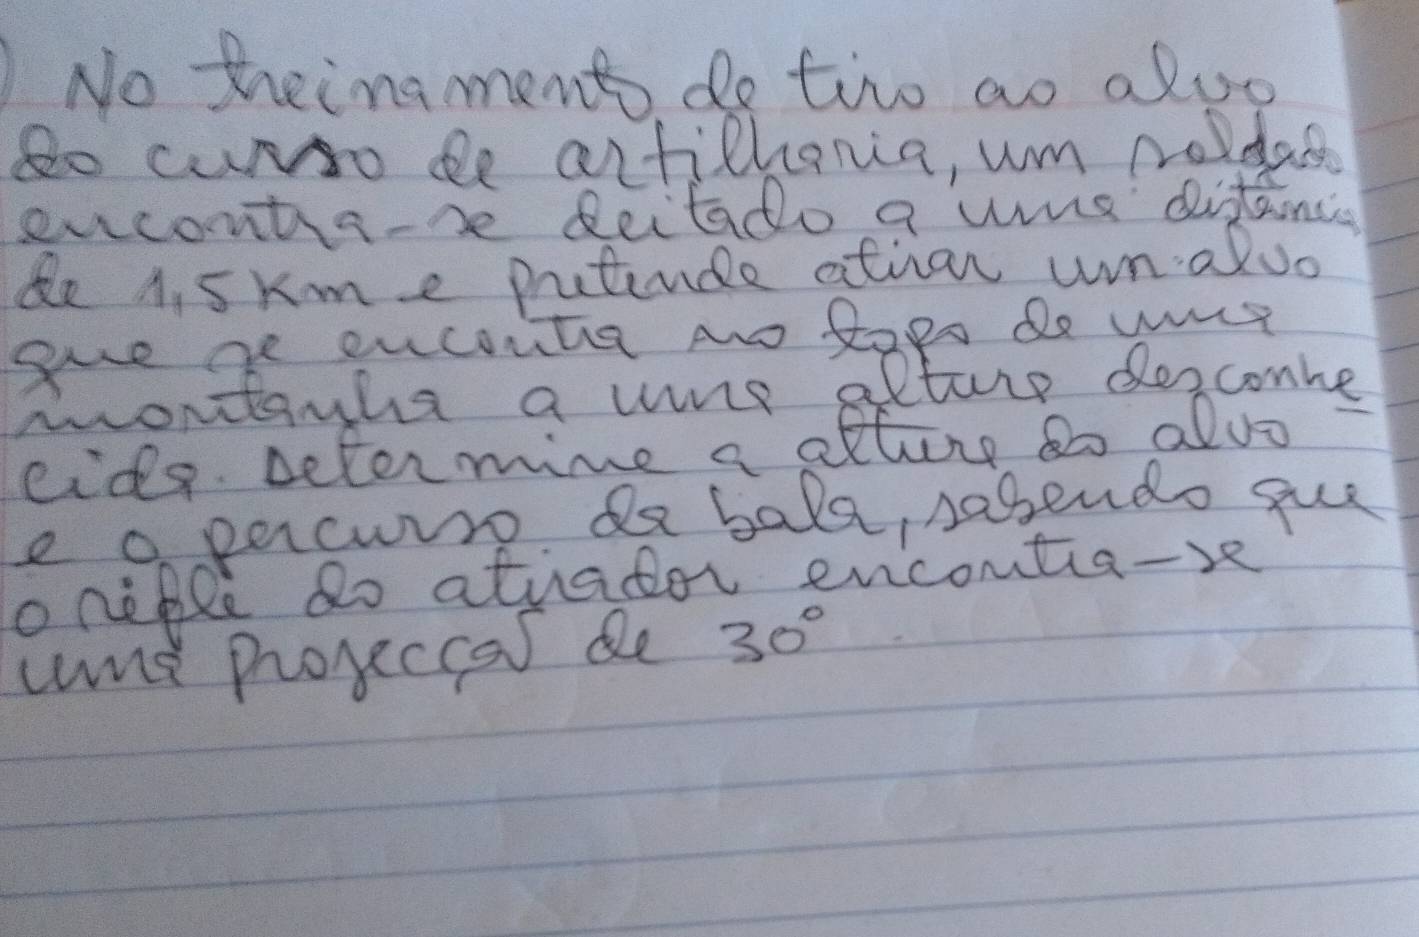 No treinamento de tiro ao alvo
do curso de artilharia, um soldado
encontra-se deitado a uma distância
de 1,5 Km e pretende atirar um alvo
que se encontra no topo de uma
montanha a uma altura desconhe
cida. Determine a altura do alvo
e o percurso da bala, sabendo que
o rifle do atirador encontra-se
uma projecção de 30°.